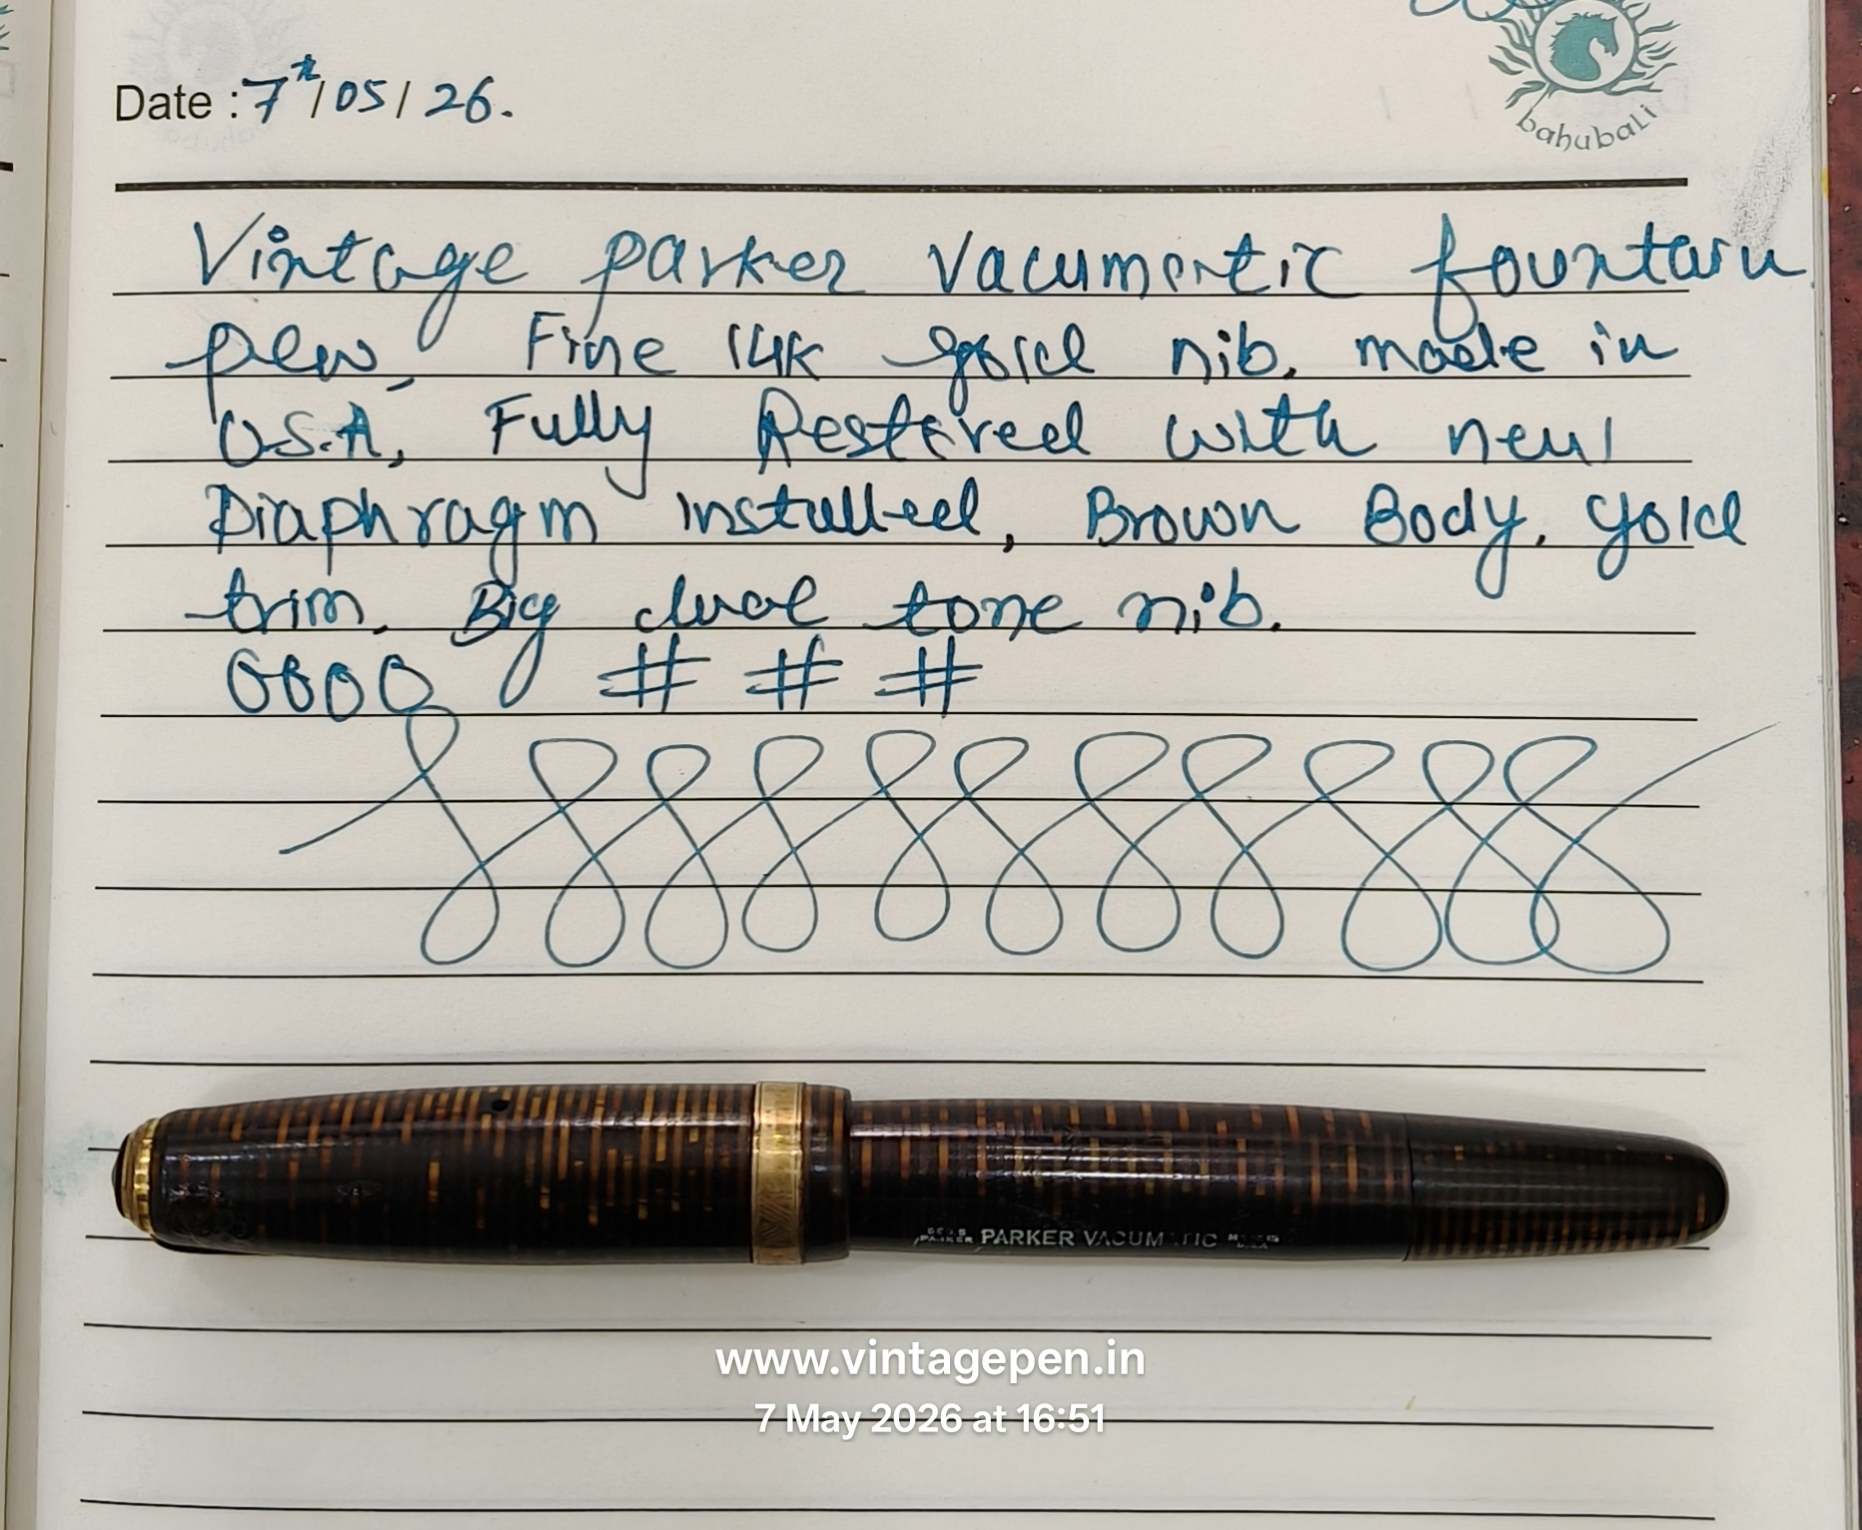 bahubali
Date : 7th/05/26.
Vintage parker Vacumartic fountain
pen, Fine 14K gold nib. made in
U.S.A, Fully Restored with new
Diaphragm installed, Brown Body, gold
trim. Big dual tone nib.
# # #
PARKER VACUM TIC
www.vintagepen.in
7 May 2026 at 16:51